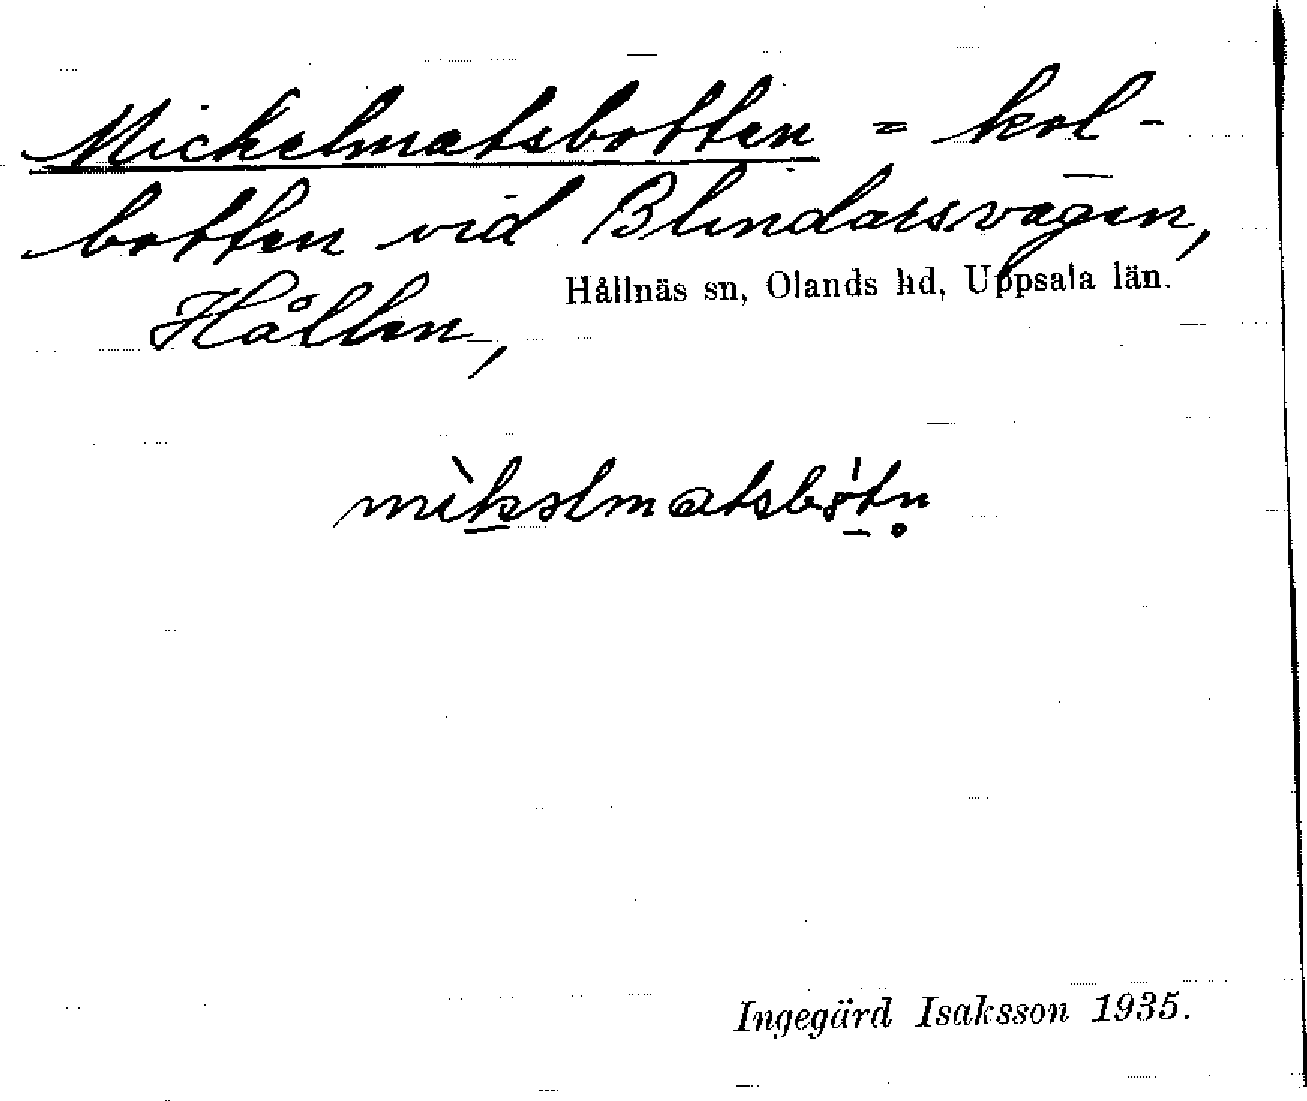 Mickelmatsbotten = kol-
botten vid Blindarsvägen,
Hållnäs sn, Olands hd, Uppsala län.
Hållen,
Ingegärd Isaksson 1935.